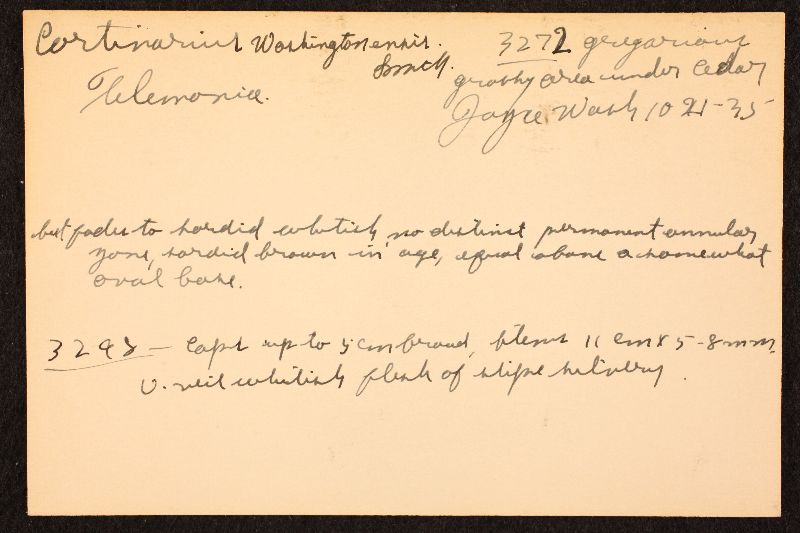 Cortinarius Washingtonensis. Smith.
Telemonia.
3272 gregarious
grassy area under Cedar
Joyce Wash 10-21-35
but fades to sordid whitish, no distinct permanent annular
zone, sordid brown in age, equal above a somewhat
oval base.
3298 — Caps up to 5 cm broad, stems 11 cm x 5-8 mm,
U. veil whitish flesh of stipe silvery.